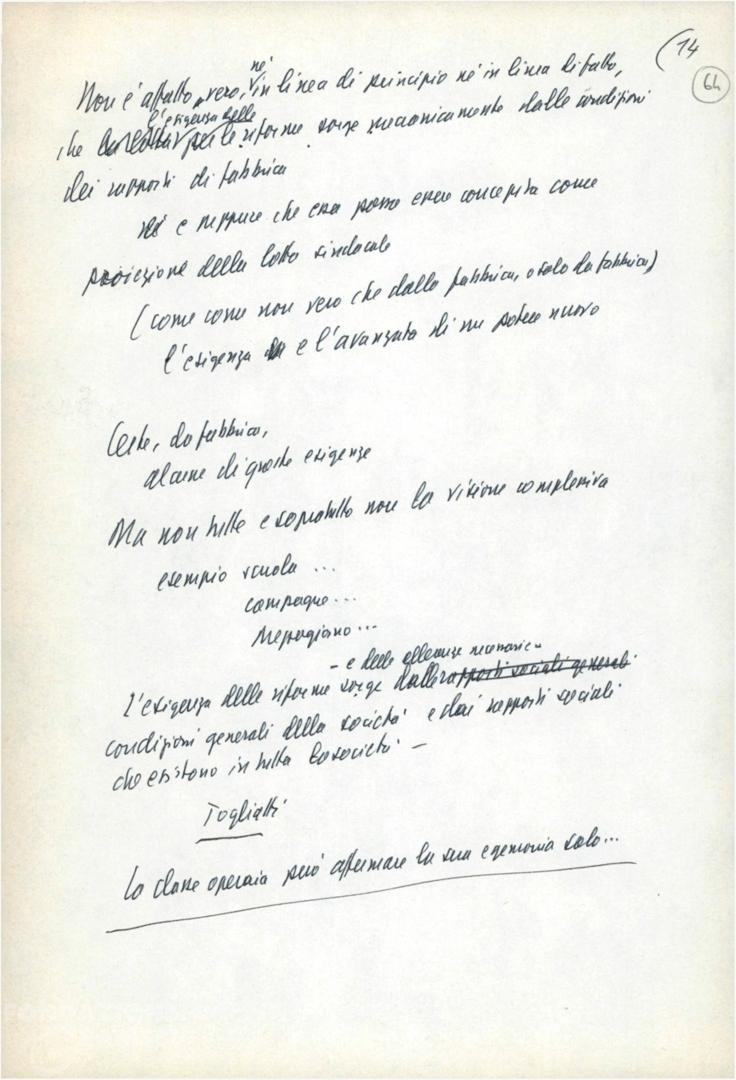 (14
64
né
Non è affatto vero, in linea di principio né in linea di fatto,
l'esigenza delle
che la lotta per le riforme sorge meccanicamente dalle condizioni
dei rapporti di fabbrica
né e neppure che essa possa essere concepita come
proiezione della lotta sindacale
(come come non vero che dalla fabbrica, o solo da fabbrica)
l'esigenza e l'avanzata di un potere nuovo
Certe, da fabbrica,
alcune di queste esigenze
Ma non tutte e soprattutto non la visione complessiva
esempio scuola ...
campagne ...
Mezzogiorno ...
- e delle alleanze necessarie -
L'esigenza delle riforme sorge dalle rapporti sociali generali
condizioni generali della società e dai rapporti sociali
che esistono in tutta la società -
Togliatti
La classe operaia può affermare la sua egemonia solo...